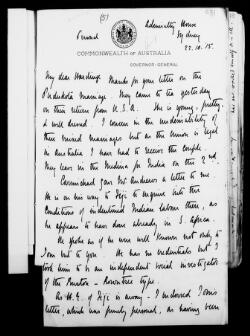 Private
Admiralty House
Sydney
22.10.15.
COMMONWEALTH OF AUSTRALIA
GOVERNOR-GENERAL
My dear Hardinge Thanks for your letter on the
marriage. They came to tea yesterday
on their return from U.S.A. She is young, pretty
& well dressed. I concur in the undesirability of
these mixed marriages but as the union is legal
in Australia I have had to receive the couple.
They leave in the Medina for India on the 2nd.
Carmichael gave Mr Andrews a letter to me.
He is on his way to Fiji to inquire into the
conditions of indentured Indian labour there, as
he appears to have done already in S. Africa.
He spoke as if he were well known not only to
him but to you. He has no credentials but I
took him to be an independent social investigator
of the type.
As H.E. of Fiji is away I enclosed
letter, which was purely personal, as having been